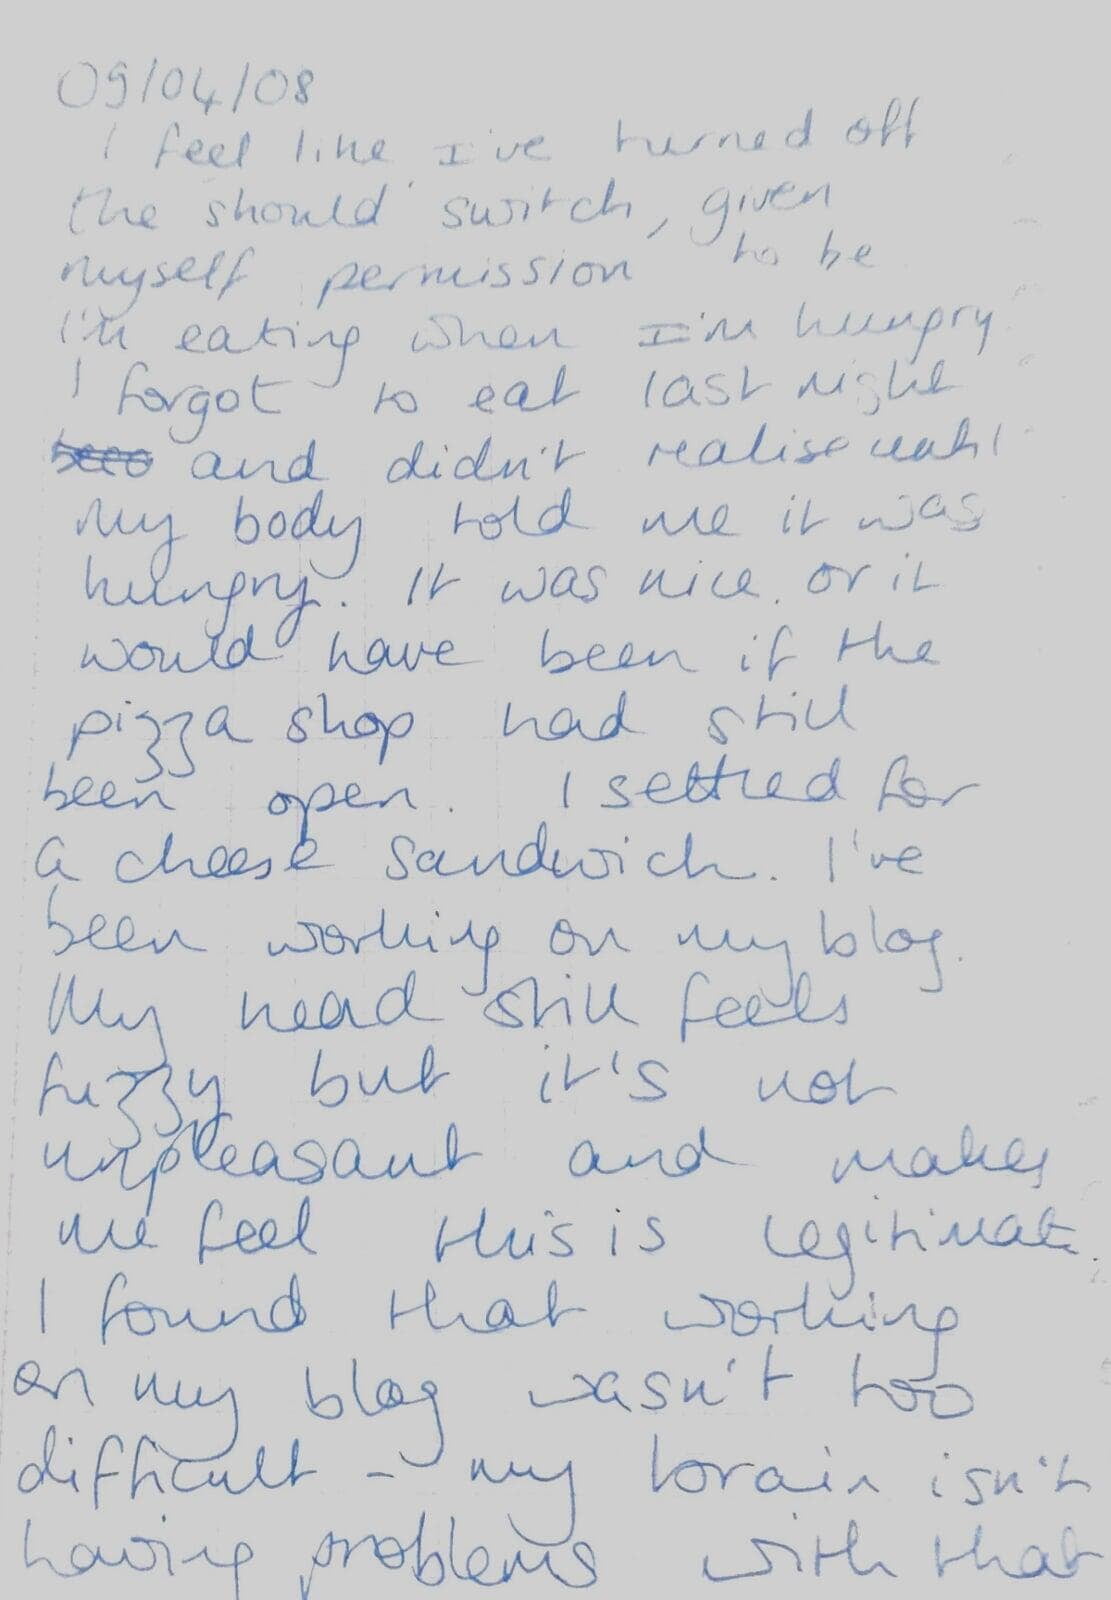 09/04/08
I feel like I've turned off
the should switch, given
myself permission to be
I'm eating when I'm hungry
I forgot to eat last night
and didn't realise until
my body told me it was
hungry. It was nice. or it
would have been if the
pizza shop had still
been open. I settled for
a cheese sandwich. I've
been working on my blog.
My head still feels
fuzzy but it's not
unpleasant and makes
me feel this is legitimate.
I found that working
on my blog wasn't too
difficult - my brain isn't
having problems with that